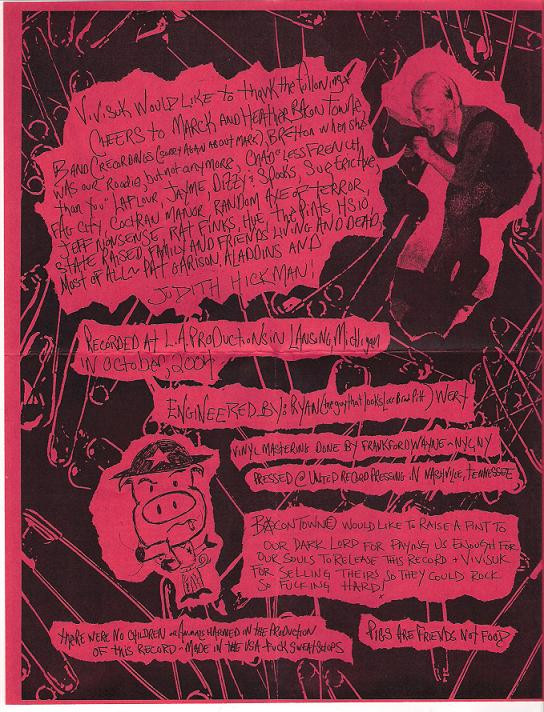 VIVISUK WOULD LIKE to thank the following
CHEERS to MARCK AND HEATHER BACON TOWNE
BAND (RECORDINGS (SORRY AGAIN ABOUT MARK), BRETTON WHEN SHE
WAS OUR "Roadie, but not anymore, CHAD "LESS FRENCH
than You" LAFLOUR, JAYME, Dizzy, SPOOKS, SUE
FAG CITY, COCTRAU MANOR, RANDOM AXE OF TERROR,
JEFF NONSENSE, RAT FINKS, The PINTS, HS10,
STATE RAISED, FAMILY AND FRIENDS LIVING AND DEAD,
MOST OF ALL~ PAT GARISON, ALADDINS AND
JUDITH HICKMAN!
RECORDED AT L.A. PRODUCTIONS IN LANSING, Michigan
IN OCTOBER, 2004
ENGINEERED BY: RYAN (the guy that looks like Brad Pitt) WERT
VINYL MASTERING DONE BY FRANKFORD WAYNE ~ NYC, NY
PRESSED @ UNITED RECORD PRESSING IN NASHVILLE, TENNESSEE
BACON TOWNE WOULD LIKE TO RAISE A PINT TO
OUR DARK LORD FOR PAYING US ENOUGH FOR
OUR SOULS TO RELEASE THIS RECORD + VIVISUK
FOR SELLING THEIRS SO THEY COULD ROCK
SO FUCKING HARD!
THERE WERE NO CHILDREN or Animals HARMED IN THE PRODUCTION
OF THIS RECORD ~ MADE IN THE USA ~ FUCK SWEATSHOPS
PIGS ARE FRIENDS NOT FOOD